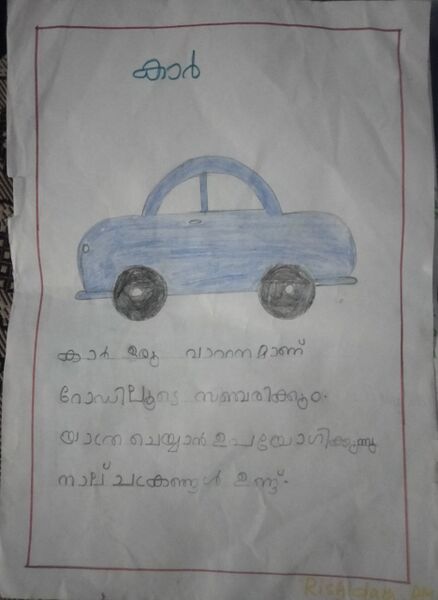 കാർ
കാർ ഒരു വാഹനമാണ്
റോഡിലൂടെ സഞ്ചരിക്കും.
യാത്ര ചെയ്യാൻ ഉപയോഗിക്കുന്നു
നാല് ചക്രങ്ങൾ ഉണ്ട്.